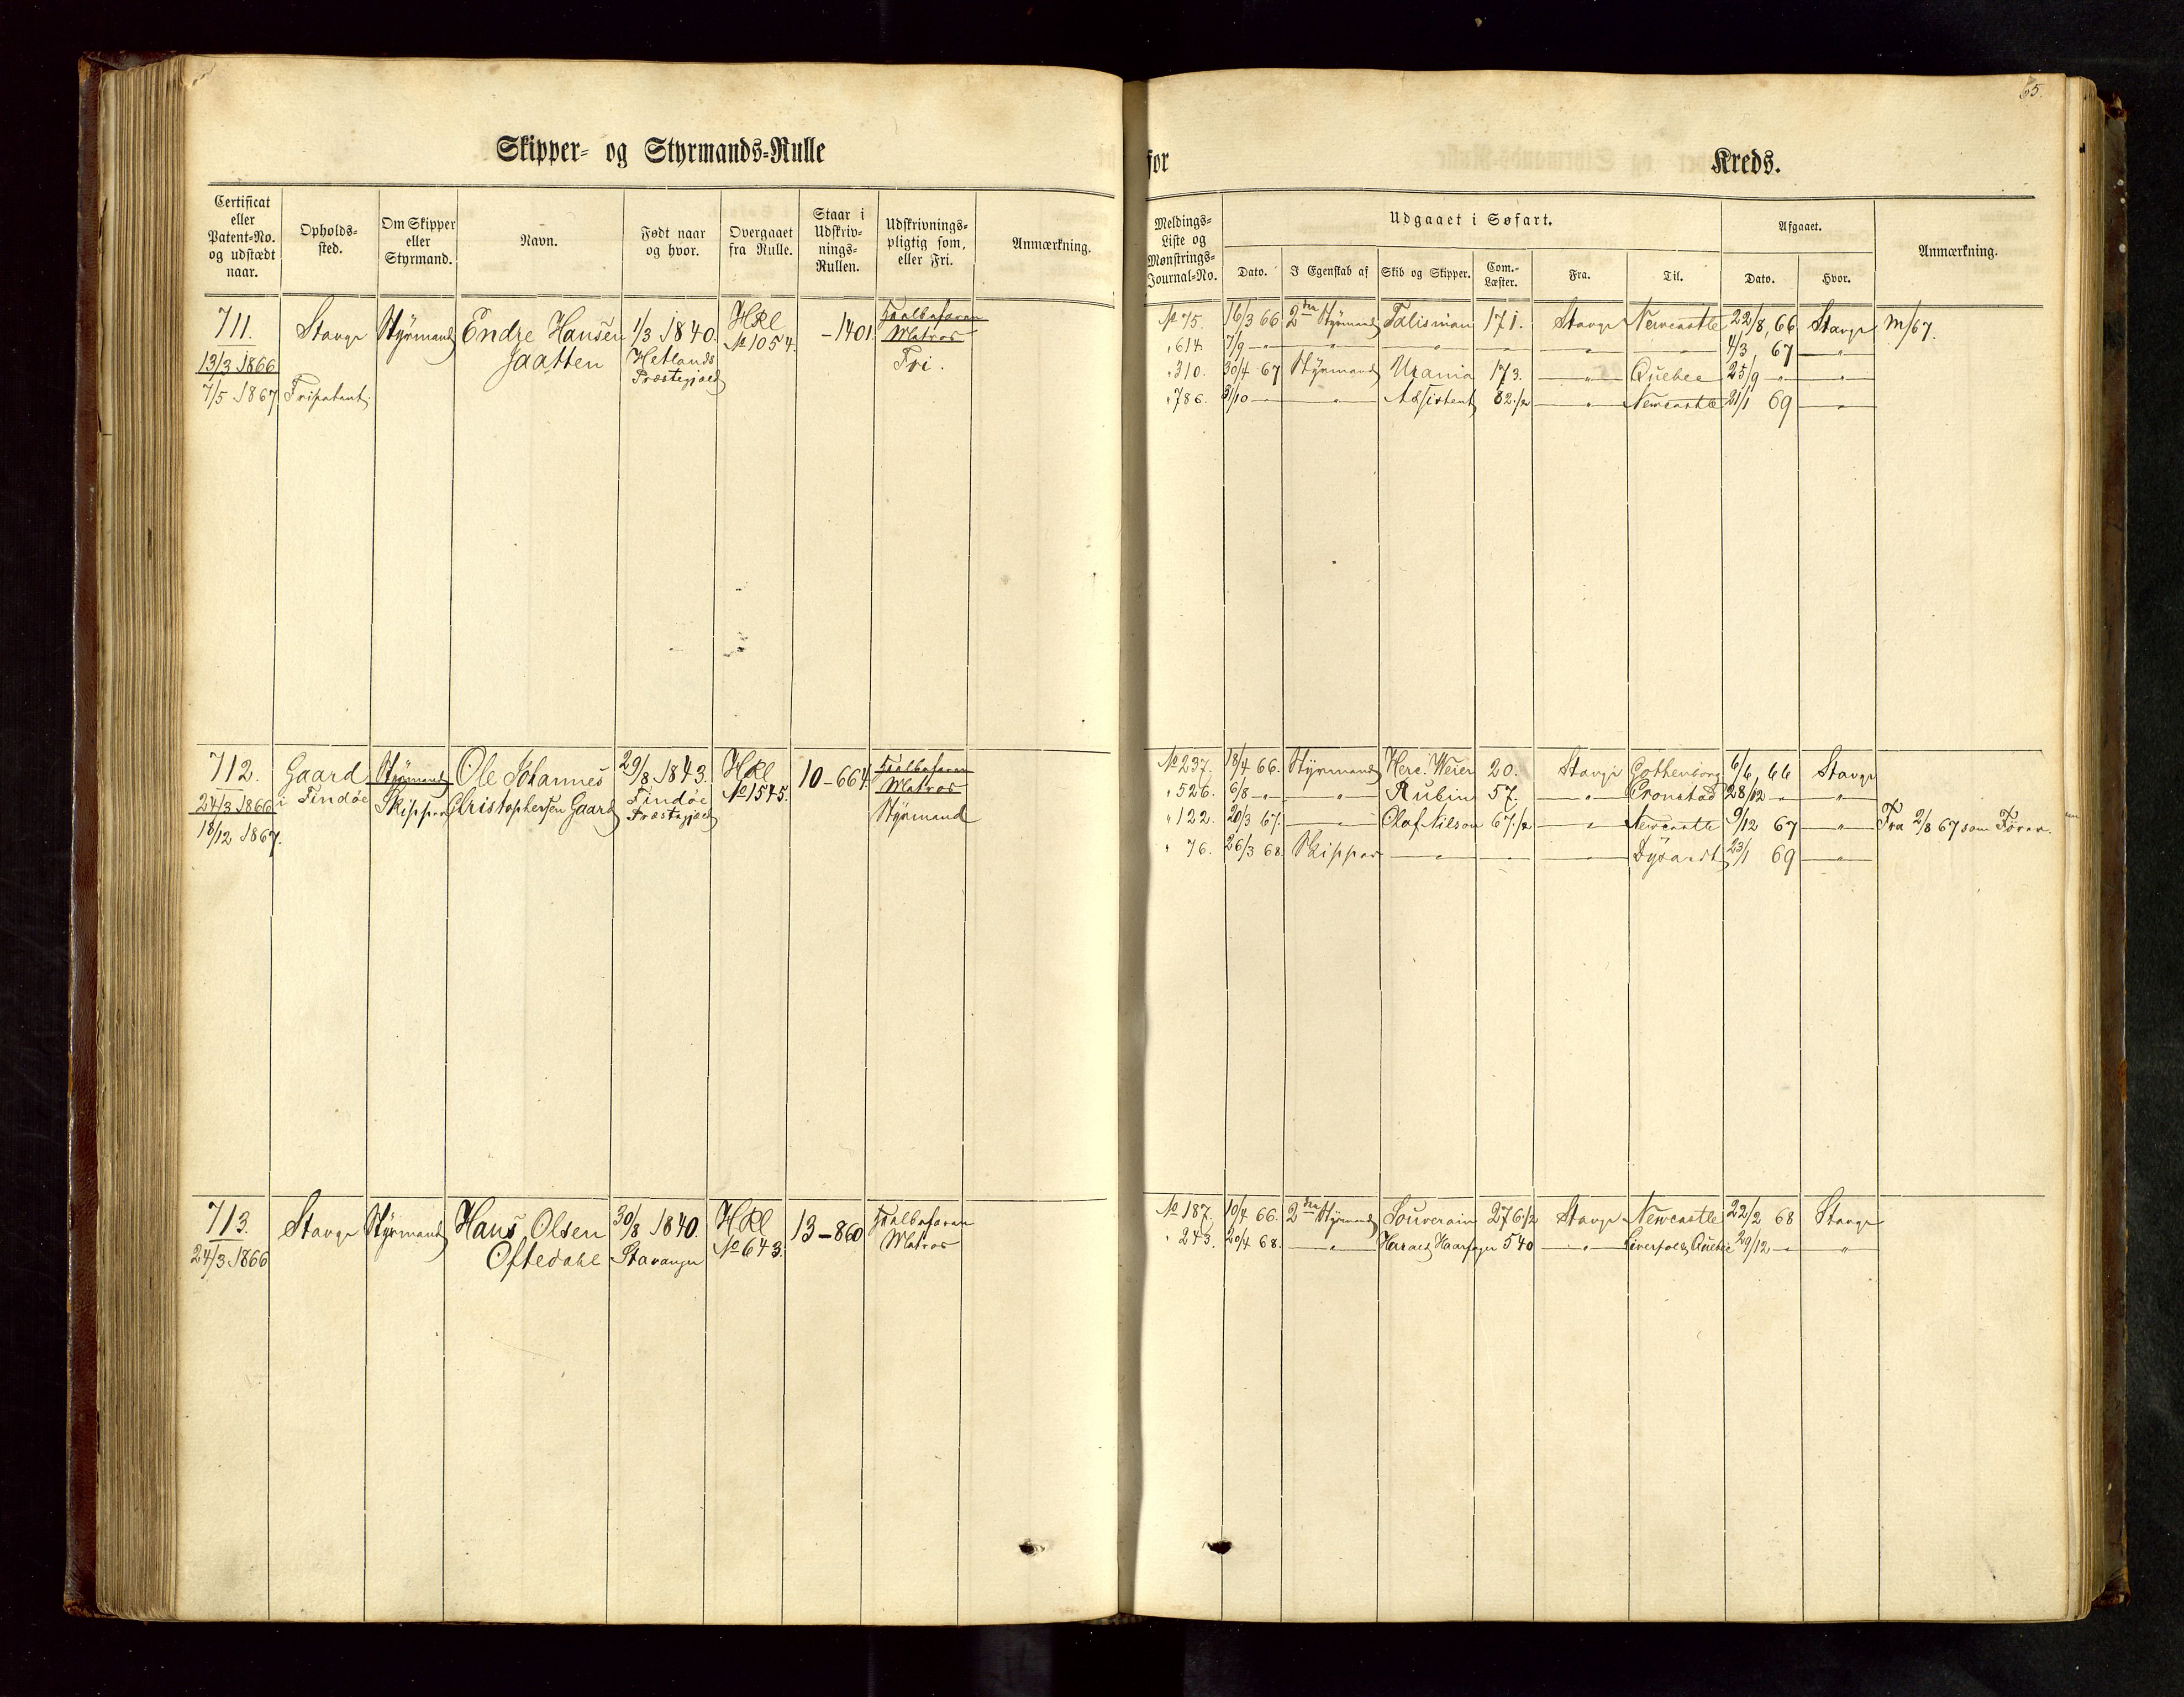 65.
Skipper- og Styrmands-Rulle for Kreds.
Certificat eller Patent-No. og udstædt naar. Opholds-sted. Om Skipper eller Styrmand. Navn. Født naar og hvor. Overgaaet fra Rulle. Staar i Udskriv-nings-Rullen. Udskrivnings-pligtig som, eller Fri. Anmærkning.
Meldings-Liste og Mønstrings-Journal-No. Udgaaet i Søfart. Dato. I Egenskab af Skib og Skipper. Com.-Læster. Fra. Til. Afgaaet. Dato. Hvor. Anmærkning.
711. Stavgr Styrmand Endre Hansen 1/3 1840. HRl - 1401. Halvbefaren
13/3 1866 Jaatten Hetlands No 1054. Matros
7/5 1867 Fripatent. Præstegjæld Fri.
No 75. 16/3 66. 2den Styrmand Talisman 171. Stavgr Newcastle 22/8, 66 Stavgr M/67.
" 614 7/9 — " — — " — — " — — " — — " — 4/3 67 — " —
" 310. 30/4 67 Styrmand Urania 173. — " — Quebec 25/9 — " — — " —
" 786. 3/10 — — " — Assistent 82.1/2 — " — Newcastle 21/1 69 — " —
712. Gaard Styrmand Ole Johannes 29/8 1843. HRl 10-664. Halvbefaren
24/3 1866 i Findöe Skipper Christophersen Gaard Findöe No 1545. Matros
18/12 1867. Præstegjæld Styrmand
No 237. 18/4 66. Styrmand Herc. Weier 20. Stavgr Gothenborg 6/6, 66 Stavgr
" 526. 6/8 — " — " Rubin 57. — " — Cronstad 28/12 — " — "
" 122. 20/3 67. — " — Olaf Nilson 67.1/2 — " — Newcastle 9/12 67 — " — Fra 2/8 67 som Fører.
" 76. 26/3 68. Skipper — " — — " — Dysardt 23/1 69 — " —
713. Stavgr Styrmand Hans Olsen 30/8 1840. HRl 13-860 Halvbefaren
24/3 1866 Oftedahl Stavanger No 643. Matros
No 187. 10/4 66. 2den Styrmand Souverain 276.1/2 Stavgr Newcastle 22/2 68 Stavgr
" 243. 20/4 68. — " — Harald Haarfager 540 — " — Liverpool, Quebec 29/12 — " — "